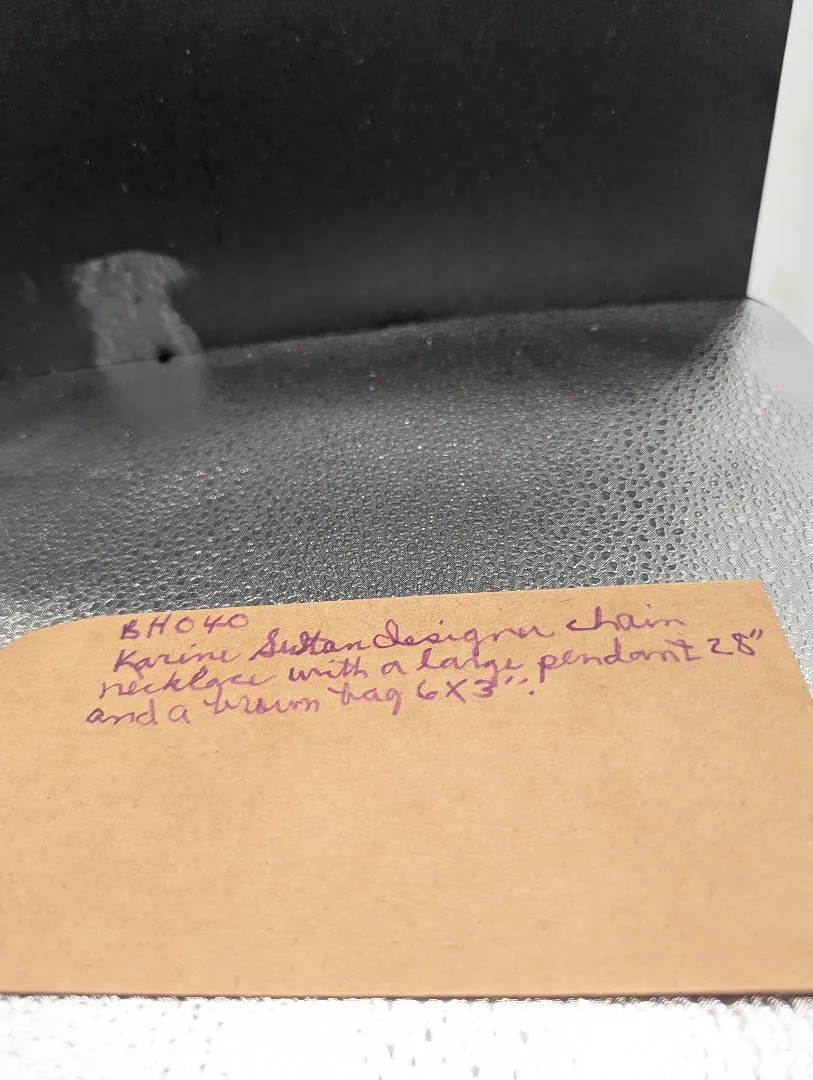 BH040
Karine Sultan designer chain
necklace with a large pendant 28"
and a brown bag 6X3".